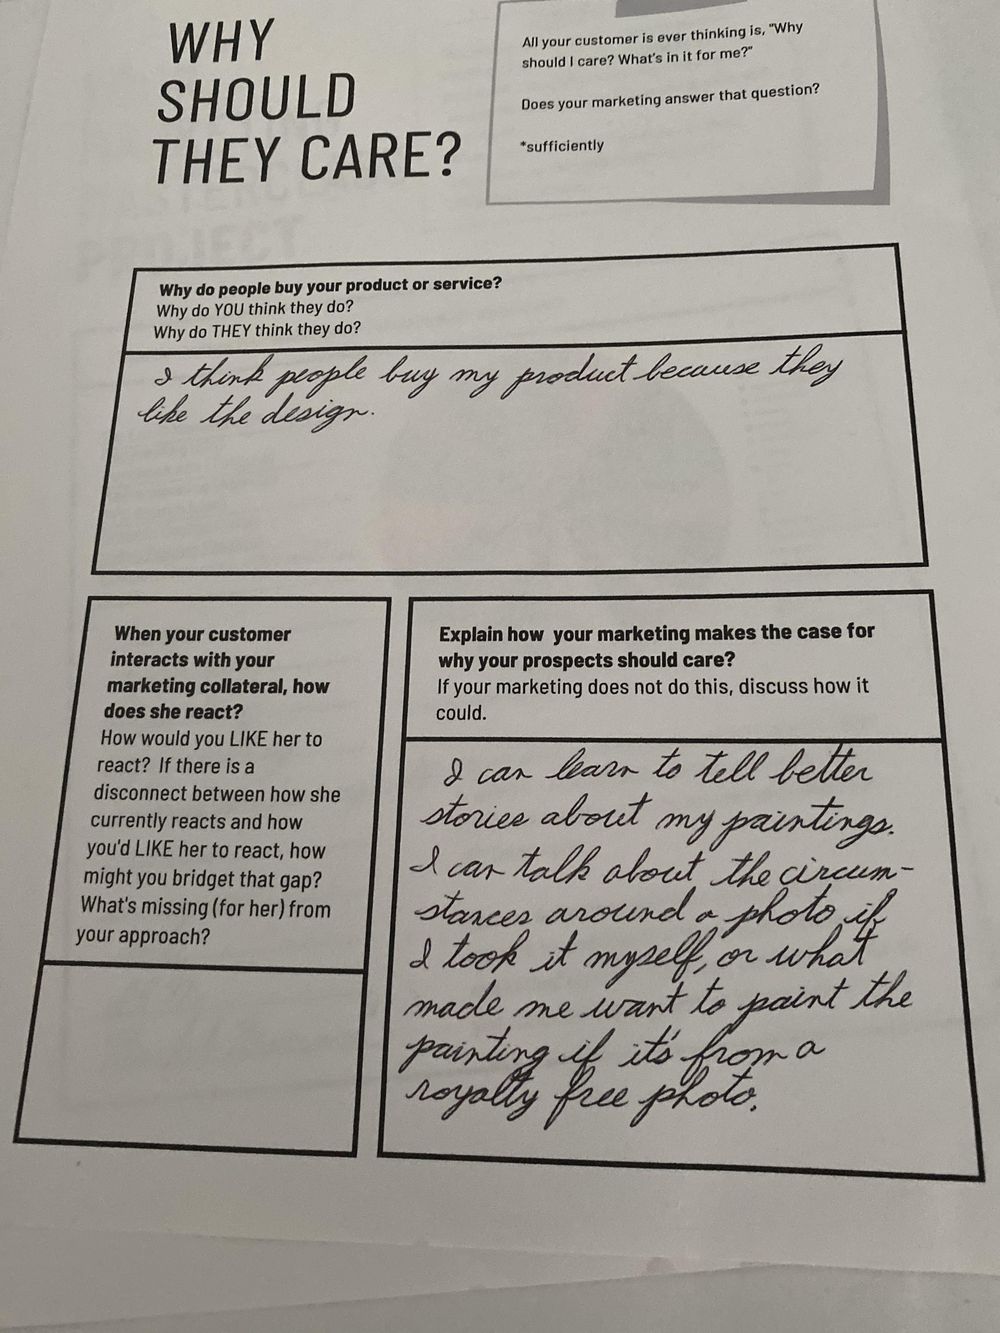 WHY
SHOULD
THEY CARE?
All your customer is ever thinking is, "Why
should I care? What's in it for me?"
Does your marketing answer that question?
*sufficiently
PROJECT
Why do people buy your product or service?
Why do YOU think they do?
Why do THEY think they do?
I think people buy my product because they
like the design.
When your customer
interacts with your
marketing collateral, how
does she react?
How would you LIKE her to
react? If there is a
disconnect between how she
currently reacts and how
you'd LIKE her to react, how
might you bridget that gap?
What's missing (for her) from
your approach?
Explain how your marketing makes the case for
why your prospects should care?
If your marketing does not do this, discuss how it
could.
I can learn to tell better
stories about my paintings.
I can talk about the circum-
stances around a photo if
I took it myself, or what
made me want to paint the
painting if it's from a
royalty free photo.